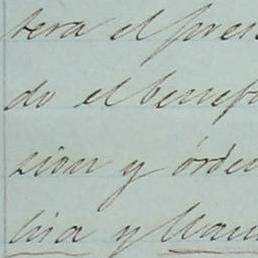 tera el pres
do el benef
sion y órde
lria y Man